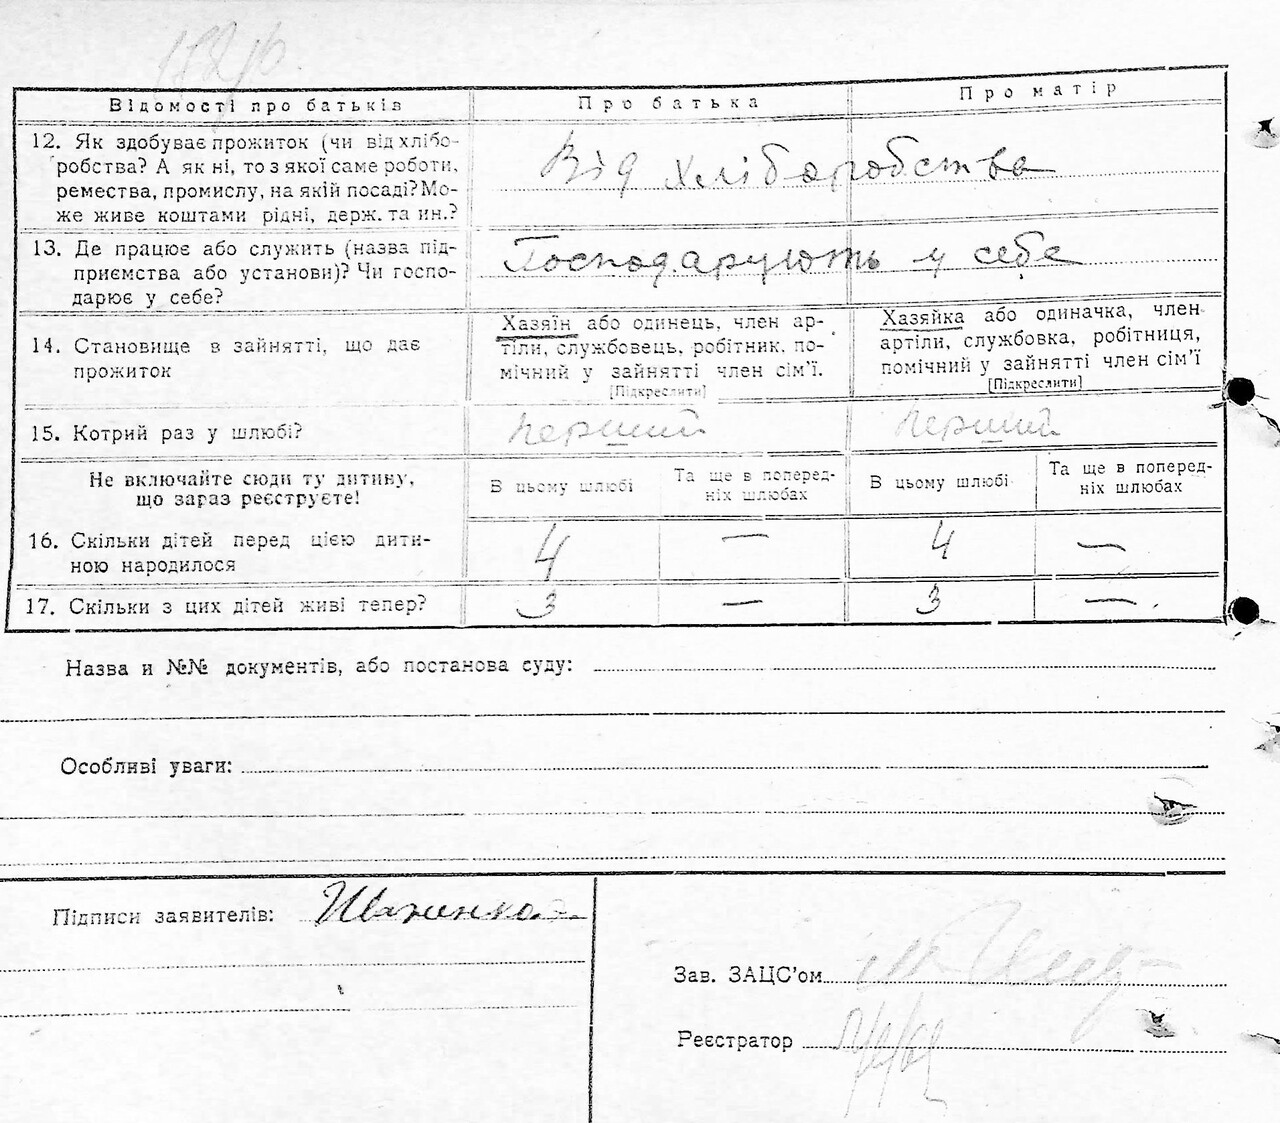 Відомості про батьків Про батька Про матір
12. Як здобуває прожиток (чи від хлібо-
робства? А як ні, то з якої саме роботи,
ремества, промислу, на якій посаді? Мо-
же живе коштами рідні, держ. та ин.?
Від хліборобства
13. Де працює або служить (назва під-
приємства або установи)? Чи госпо-
дарює у себе?
Господарують у себе
14. Становище в зайнятті, що дає
прожиток
Хазяїн або одинець, член ар-
тіли, службовець, робітник, по-
мічний у зайнятті член сім'ї.
[Підкреслити]
Хазяйка або одиначка, член
артіли, службовка, робітниця,
помічний у зайнятті член сім'ї
[Підкреслити]
15. Котрий раз у шлюбі? перший перший
Не включайте сюди ту дитину,
що зараз реєструєте!
В цьому шлюбі
Та ще в поперед-
ніх шлюбах
В цьому шлюбі
Та ще в поперед-
ніх шлюбах
16. Скільки дітей перед цією дити-
ною народилося
4 — 4 —
17. Скільки з цих дітей живі тепер? 3 — 3 —
Назва и №№ документів, або постанова суду:
Особливі уваги:
Підписи заявителів:
Зав. ЗАЦС'ом
Реєстратор